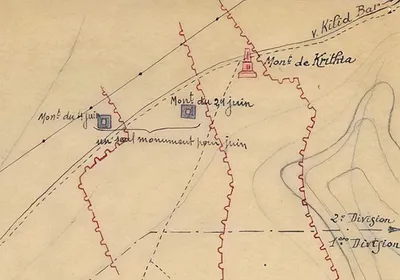 v. Kilid Bar
Mont de Krithia
Mont du 4 juin
Mont du 24 juin
un seul monument pour juin
2e Division
1ère Division